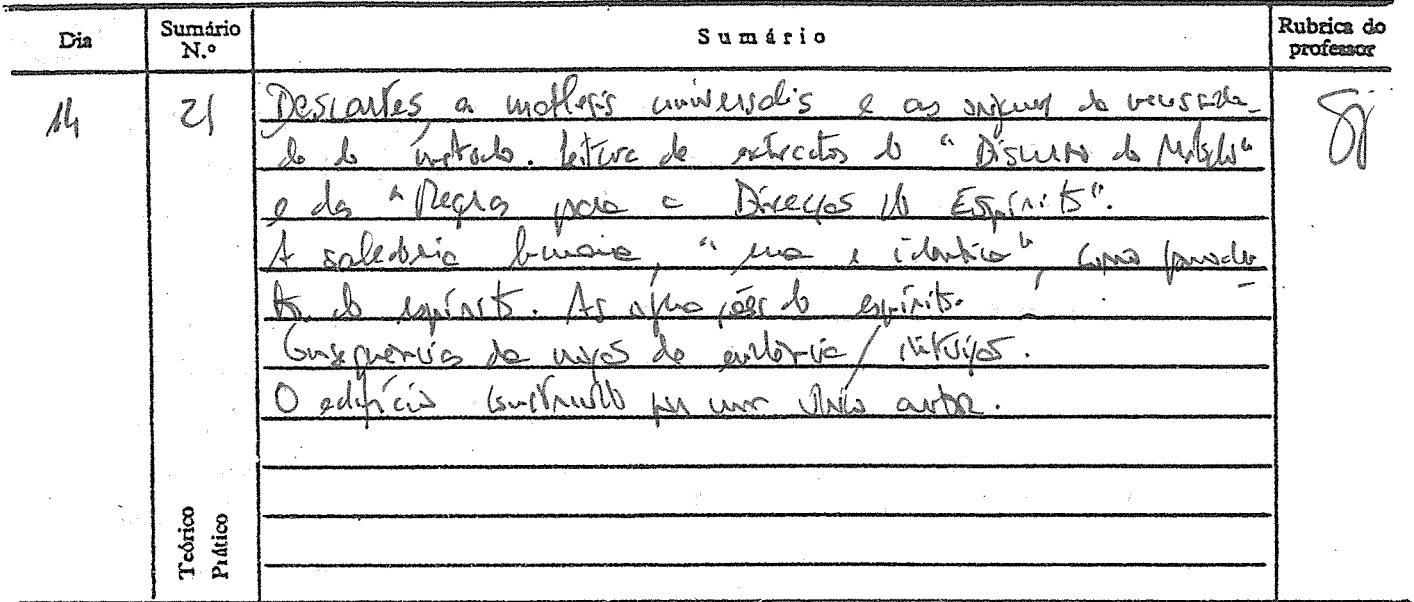 Dia Sumário N.º Sumário Rubrica do professor
14 21 Descartes, a mathesis universalis e as origens da necessida-
de do método. Leitura de extractos do "Discurso do Método"
e das "Regras para a Direcção do Espírito".
A sabedoria humana, "una e idêntica", como produ-
to do espírito. As operações do espírito.
Consequências da noção de evidência / intuição.
O edifício construído por um único autor.
Teórico
Prático